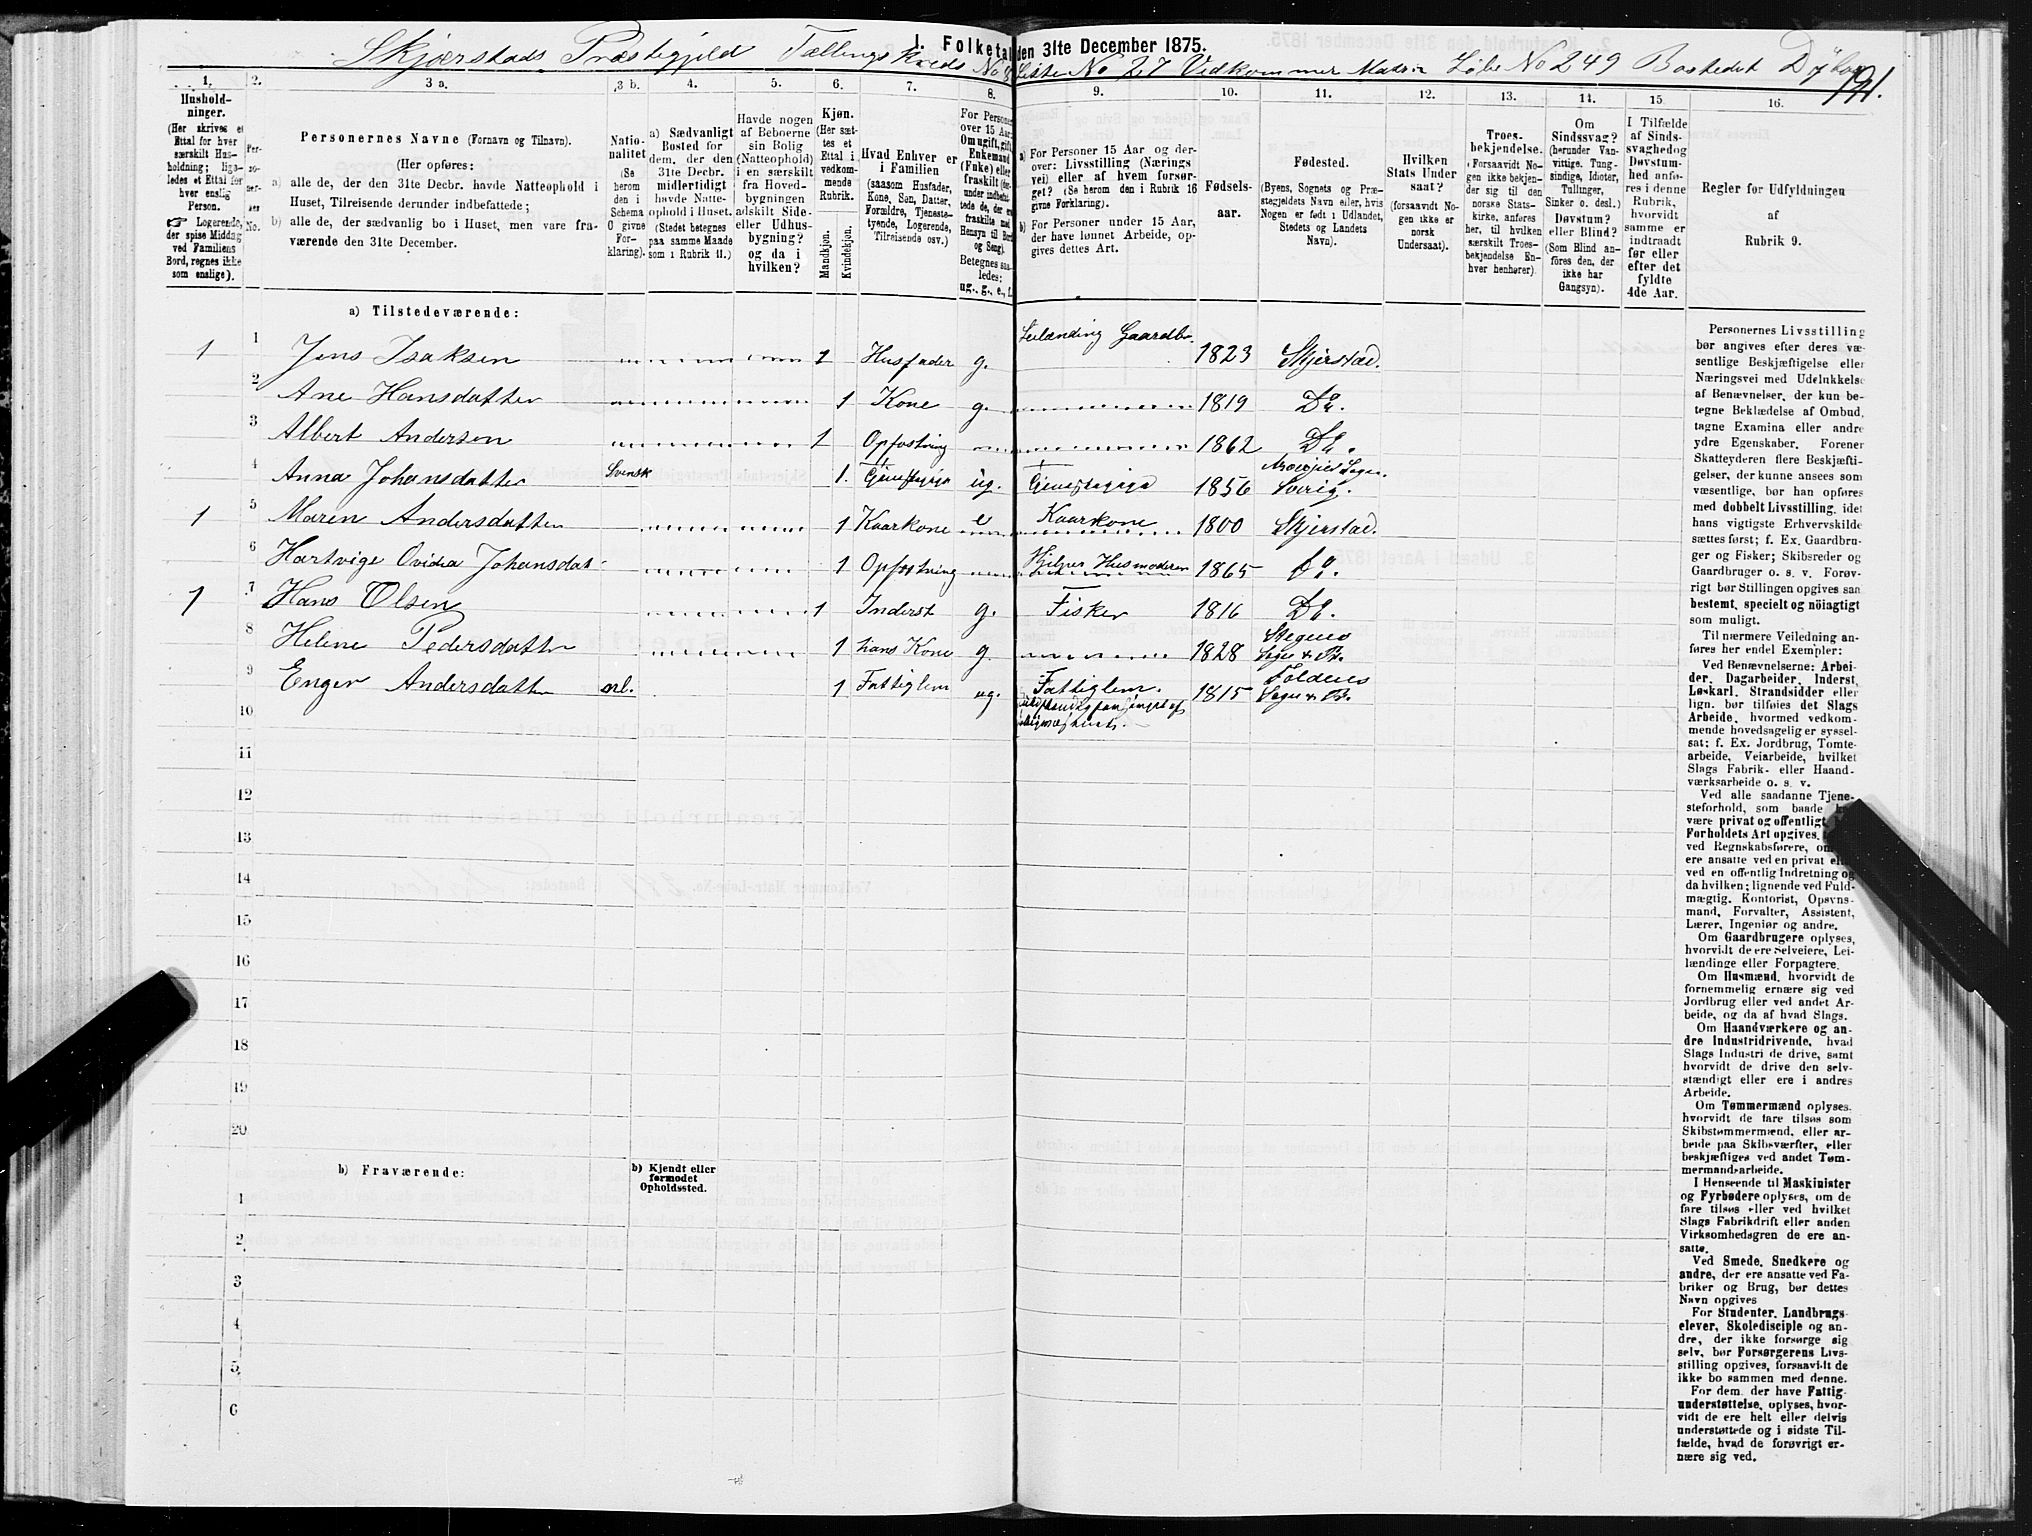 I. Folketal den 31te December 1875.
Skjærstads Præstegjeld Tællingskreds No Liste No 27 Vedkommer Matr. Løbe No 249 Bostedet
191.
1. 2. 3 a. 3 b. 4. 5. 6. 7. 8. 9. 10. 11. 12. 13. 14. 15. 16.
Husholdninger.
(Her skrives et
Ettal for hver
særskilt Husholdning; ligeledes
et Ettal for
hver enslig
Person.
☞ Logerende,
der spise Middag
ved Familiens
Bord, regnes ikke
som enslige).
Personernes No.
Personernes Navne (Fornavn og Tilnavn).
(Her opføres:
a) alle de, der den 31te Decbr. havde Natteophold i
Huset, Tilreisende derunder indbefattede;
b) alle de, der sædvanlig bo i Huset, men vare fraværende
den 31te December.
Nationalitet
(Se
herom
den i
Schema
O givne
Forklaring).
a) Sædvanligt
Bosted for
dem, der den
31te Decbr.
midlertidigt
havde Natteophold
i Huset.
(Stedet betegnes
paa samme Maade
som i Rubrik 11.)
Havde nogen
af Beboerne
sin Bolig
(Natteophold)
i en særskilt
fra Hovedbygningen
adskilt Side-
eller Udhusbygning?
og da i
hvilken?
Kjøn.
(Her sættes
et
Ettal i
vedkommende
Rubrik.
Mandkjøn.
Kvindekjøn.
Hvad Enhver er
i Familien
(saasom Husfader,
Kone, Søn, Datter,
Forældre, Tjenestetyende,
Logerende,
Tilreisende osv.)
For Personer
over 15 Aar:
Om ugift, gift,
Enkemand
(Enke) eller
fraskilt
Betegnes saaledes:
ug., g., e., f.
a) For Personer 15 Aar og derover:
Livsstilling (Næringsvei)
eller af hvem forsørget?
(Se herom den i Rubrik 16
givne Forklaring).
b) For Personer under 15 Aar,
der have lønnet Arbeide, opgives
dettes Art.
Fødselsaar.
Fødested.
(Byens, Sognets og Præstegjeldets
Navn eller, hvis
Nogen er født i Udlandet,
Stedets og Landets
Navn).
Hvilken
Stats Undersaat?
(forsaavidt Nogen
ikke er
norsk
Undersaat).
Troesbekjendelse.
(Forsaavidt Nogen
ikke bekjender
sig til den
norske Statskirke,
anføres
her, til hvilken
særskilt Troesbekjendelse
Enhver
henhører).
Om
Sindssvag?
(herunder Vanvittige,
Tungsindige,
Idioter,
Tullinger,
Sinker o. desl.)
Døvstum?
eller Blind?
(Som Blind anføres
den, der
ikke har
Gangsyn).
I Tilfælde
af Sindssvaghed
og
Døvstumhed
anføres
i denne
Rubrik,
hvorvidt
samme er
indtraadt
før eller
efter det
fyldte
4de Aar.
Regler for Udfyldningen
af
Rubrik 9.
a) Tilstedeværende:
1 1 Jens Isaksen 1 Husfader g. Leilænding Gaardbr. 1823 Skjerstad.
2 Ane Hansdatter 1 Kone g. 1819 Do.
3 Albert Andersen 1 Opfostring 1862 Do.
4 Anna Johansdatter Svensk 1 Tjenestepige ug. Tjenestepige 1856 Sogn Sverig.
1 5 Maren Andersdatter 1 Kaarkone e Kaarkone 1800 Skjerstad.
6 Hartvige Ovidia Johansdat 1 Opfostring Hjelper Husmoderen 1865 Do.
1 7 Hans Olsen 1 Inderst g. Fisker 1816 Do.
8 Helene Pedersdatter 1 hans Kone g. 1828 Stegens Sogn & Pr.
9 Enger Andersdatter 1 Fattiglem ug. Fattiglem. 1815 Foldens Sogn & Pr.
10
11
12
13
14
15
16
17
18
19
20
b) Fraværende:
b) Kjendt eller
formodet
Opholdssted.
1
2
3
4
5
6
Personernes Livsstilling
bør angives efter deres væsentlige
Beskjæftigelse eller
Næringsvei med Udelukkelse
af Benævnelser, der kun betegne
Beklædelse af Ombud,
tagne Examina eller andre
ydre Egenskaber. Forener
Skatteyderen flere Beskjæftigelser,
der kunne ansees som
væsentlige, bør han opføres
med dobbelt Livsstilling, idet
hans vigtigste Erhvervskilde
sættes først; f. Ex. Gaardbruger
og Fisker; Skibsreder og
Gaardbruger o. s. v. Forøvrigt
bør Stillingen opgives saa
bestemt, specielt og nøiagtigt
som muligt.
Til nærmere Veiledning anføres
her endel Exempler:
Ved Benævnelserne: Arbeider,
Dagarbeider, Inderst,
Løskarl, Strandsidder eller
lign. bør tilføies det Slags
Arbeide, hvormed vedkommende
hovedsagelig er sysselsat;
f. Ex. Jordbrug, Tomtearbeide,
Veiarbeide, hvilket
Slags Fabrik- eller Haandværksarbeide
o. s. v.
Ved alle saadanne Tjenesteforhold,
som baade
være privat og offentligt,
Forholdets Art opgives,
ved Regnskabsførere, om
ere ansatte ved en privat eller
ved en offentlig Indretning og
da hvilken; lignende ved Fuldmægtig,
Kontorist, Opsynsmand,
Forvalter, Assistent,
Lærer, Ingeniør og andre.
Om Gaardbrugere oplyses,
hvorvidt de ere Selveiere, Leilændinge
eller Forpagtere.
Om Husmænd, hvorvidt de
fornemmelig ernære sig ved
Jordbrug eller ved andet Arbeide,
og da af hvad Slags.
Om Haandværkere og andre
Industridrivende, hvad
Slags Industri de drive, samt
hvorvidt de drive den selvstændigt
eller ere i andres
Arbeide.
Om Tømmermænd oplyses,
hvorvidt de fare tilsøs som
Skibstømmermænd, eller arbeide
paa Skibsværfter, eller
beskjæftiges ved andet Tømmermandsarbeide.
I Henseende til Maskinister
og Fyrbødere oplyses, om de
fare tilsøs eller ved hvilket
Slags Fabrikdrift eller anden
Virksomhedsgren de ere ansatte.
Ved Smede, Snedkere og
andre, der ere ansatte ved Fabriker
og Brug, bør dettes
Navn opgives
For Studenter, Landbrugselever,
Skoledisciple og andre,
der ikke forsørge sig
selv, bør Forsørgerens Livsstilling
opgives, forsaavidt de
ikke bo sammen med denne.
For dem, der have Fattigunderstøttelse,
oplyses, hvorvidt
de ere helt eller delvis
understøttede og i sidste Tilfælde,
hvad de forøvrigt ernære
sig ved.